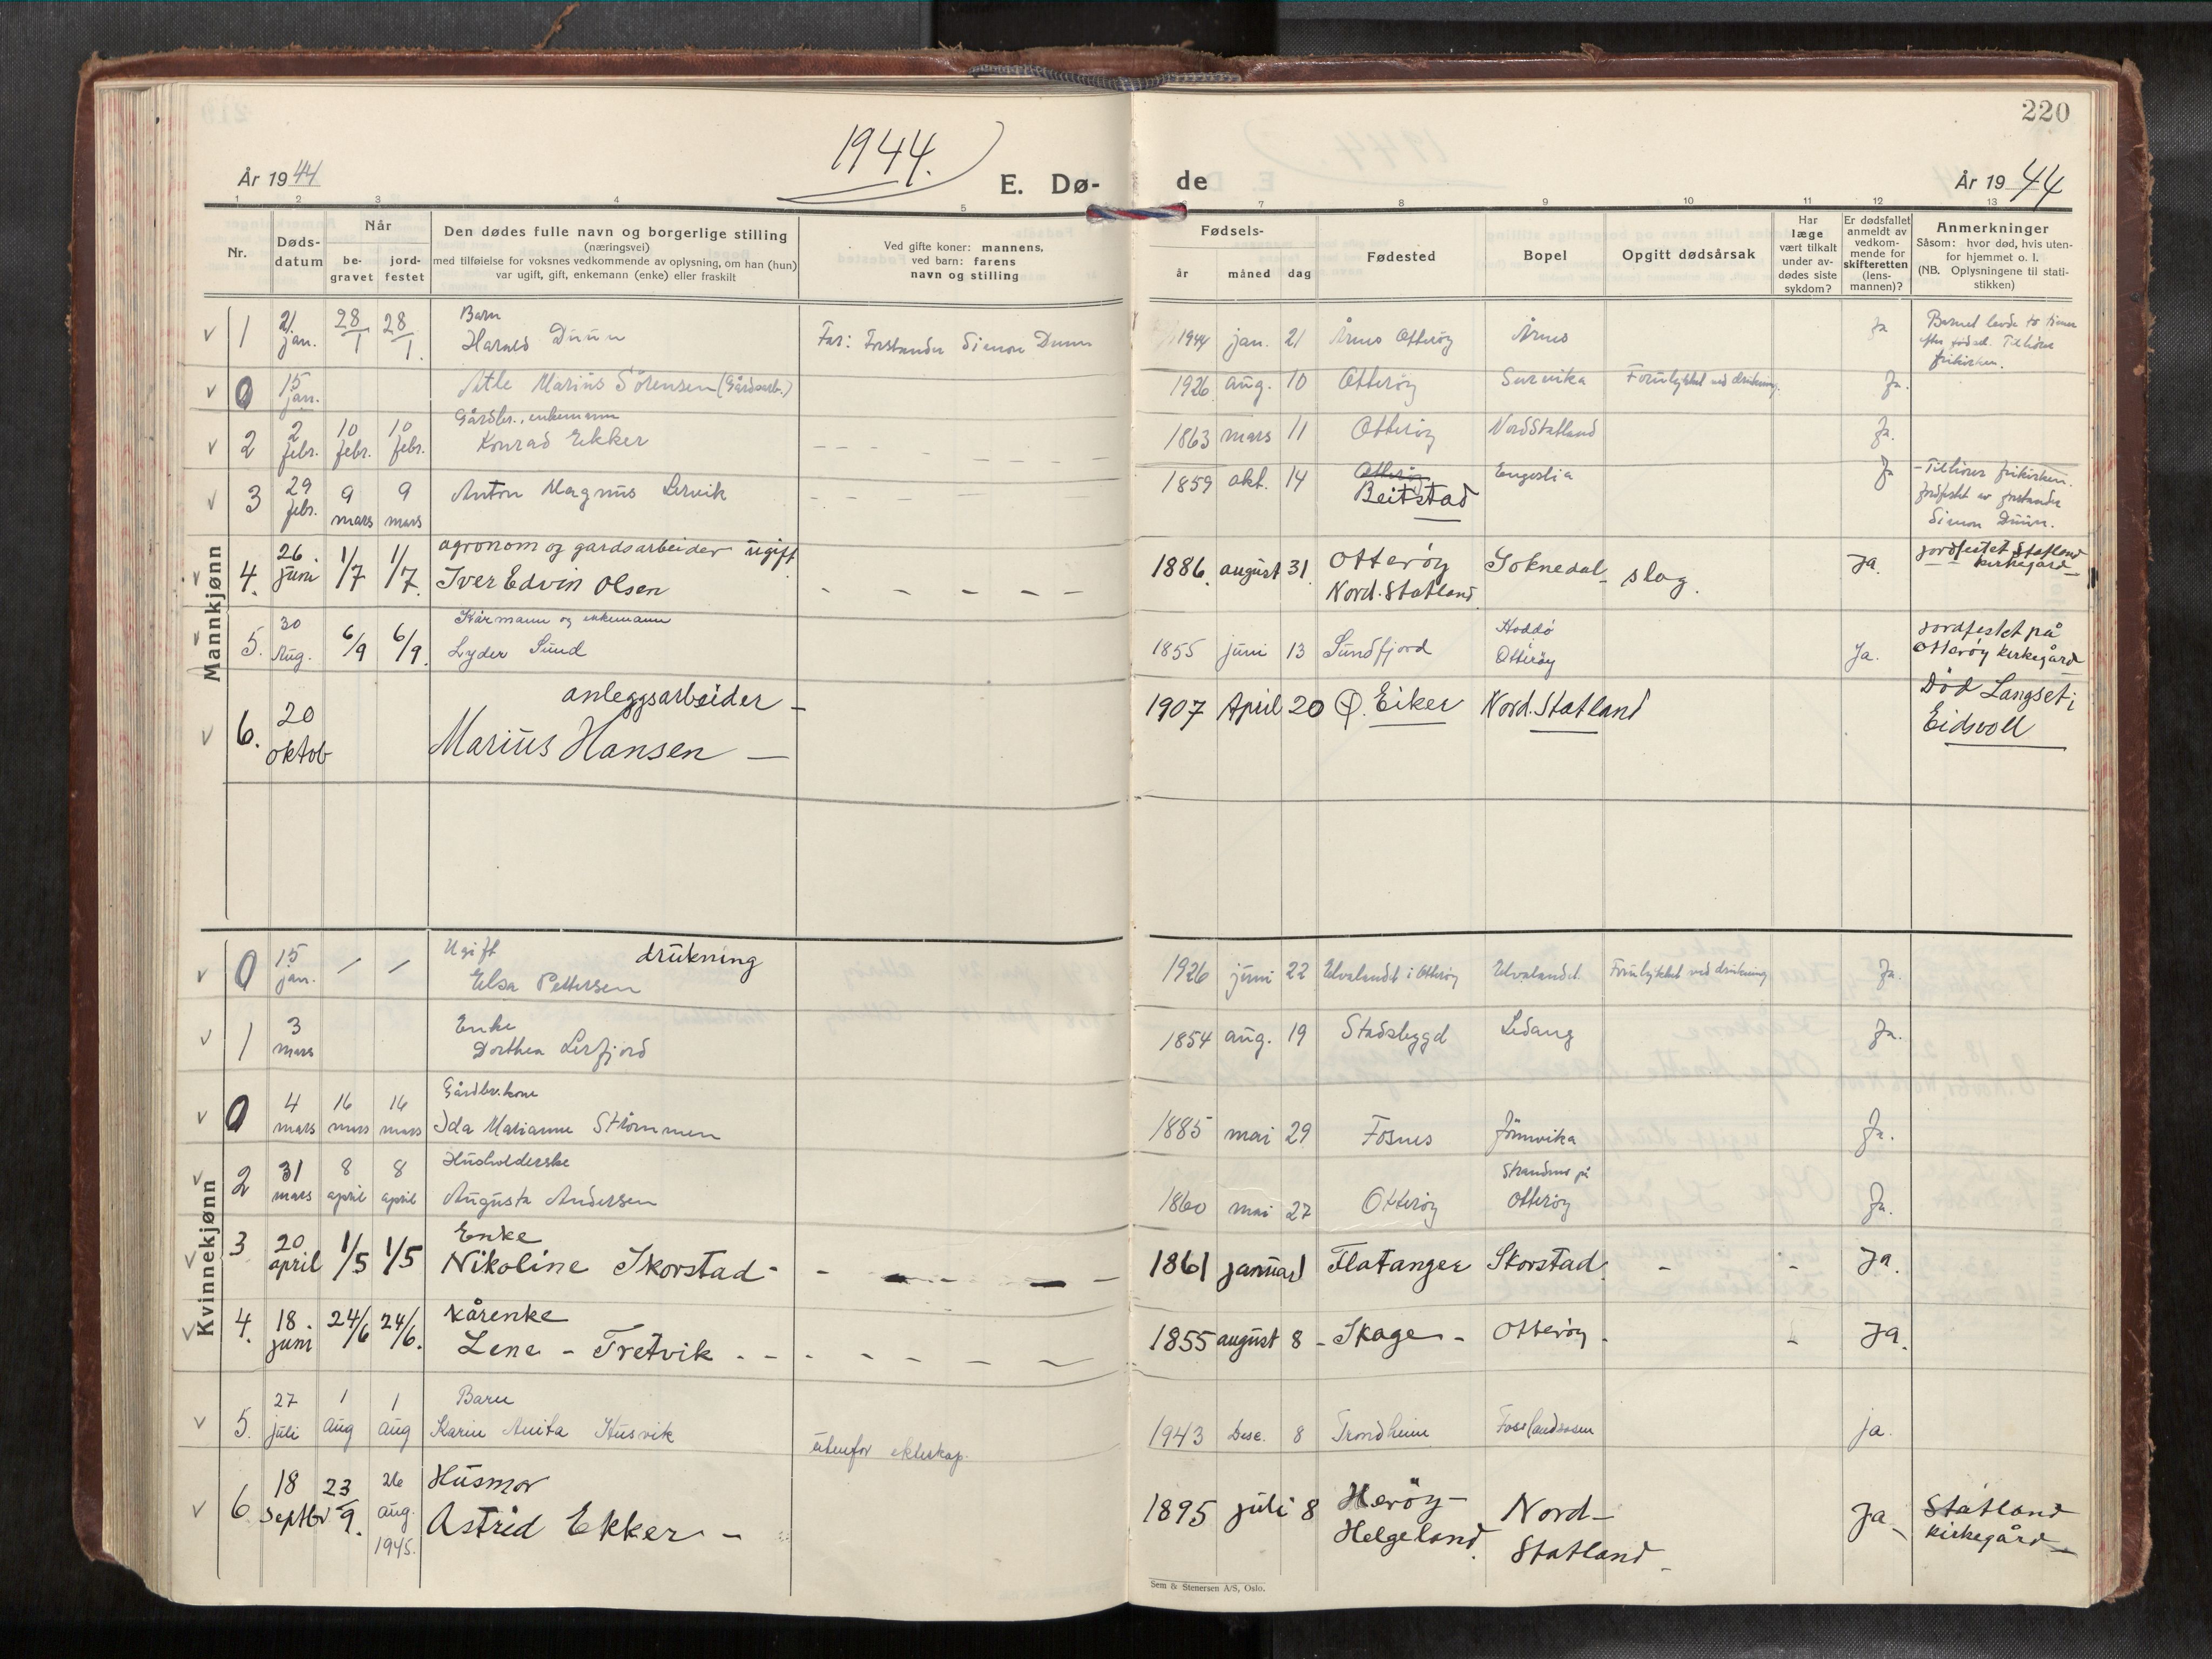 220
1944.
År 1944
E. Dø-
de
År 1944
1 2 3 4 5 7 8 9 10 11 12 13
Nr.
Døds-
datum
Når
be-
gravet
jord-
festet
Den dødes fulle navn og borgerlige stilling
(næringsvei)
med tilføielse for voksnes vedkommende av oplysning, om han (hun)
var ugift, gift, enkemann (enke) eller fraskilt
Ved gifte koner: mannens,
ved barn: farens
navn og stilling
Fødsels-
år måned dag
Fødested
Bopel
Opgitt dødsårsak
Har
læge
vært tilkalt
under av-
dødes siste
sykdom?
Er dødsfallet
anmeldt av
vedkom-
mende for
skifteretten
(lens-
mannen)?
Anmerkninger
Såsom: hvor død, hvis uten-
for hjemmet o. l.
(NB. Oplysningene til stati-
stikken)
Mannkjønn
v 1 21 jan. 28/1 28/1. Barn
Harald Duun Far: Forstander Simon Duun 1944 jan. 21 Årnes Otterøy Årnes Ja Barnet levde to timer
efter fødsel. Tilhører
frikirken.
v 0 15 jan. Atle Marius Sørensen (Gårdsarb.) 1926 aug. 10 Otterøy Survika Forulykket ved drukning. Ja.
v 2 2 febr. 10 febr. 10 febr. Gårdbr., enkemann
Konrad Ekker - - - - - - 1863 mars 11 Otterøy Nord Statland Ja.
v 3 29 febr. 9 mars 9 mars Anton Magnus Lervik - - - - - - 1859 okt. 14 Otterøy
Beitstad Engeslia Ja - Tilhører frikirken.
Jordfestet av forstander
Simon Duun.
v 4. 26. juni 1/7 1/7. agronom og gardsarbeider ugift
Iver Edvin Olsen - - - - - 1886. august 31. Otterøy
Nord. Statland Soknedal - slag. Ja. jordfestet Statland
kirkegård -
v 5. 30 Aug. 6/9 6/9. Kårmann og enkemann
Lyder Sund 1855 juni 13 Sundfjord Hoddø
i
Otterøy Ja. jordfestet på
Otterøy kirkegård
v 6. 20 oktob anleggsarbeider -
Marius Hansen - 1907 April 20 Ø. Eiker Nord. Statland Død Langset i
Eidsvoll
Kvinnekjønn
v 0 15 jan. / / Ugift drukning
Elsa Pettersen 1926 juni 22 Elvalandet i Otterøy Elvalandet Forulykket ved drukning Ja.
v 1 3 mars Enke
Dorthea Lerfjord 1854 aug. 19 Stadsbygd Ledang Ja.
v 0 4 mars 16 mars 16 mars Gårdbr.kone
Ida Marianne Strømmen 1885 mai 29 Fosnes Jønnvika Ja.
v 2 31 mars 8 april 8 april Husholderske
Augusta Andersen 1860 mai 27 Otterøy Strandnes på
Otterøy Ja.
v 3 20 april 1/5 1/5 Enke
Nikoline Skorstad - - - - - - 1861 januar 1 Flatanger Skorstad. - - Ja.
v 4. 18. juni 24/6 24/6. Kårenke
Lene - Tretvik - - - - - - - 1855 august 8 - Skage - Otterøy - - Ja.
v 5. 27 juli 1 Aug 1 Aug Barn
Karin Anita Husvik utenfor ekteskap. 1943 Des. 8 Trondheim Fosslandsosen ja.
v 6. 18 septbr 23/9. 26 aug. 1945. Husmor
Astrid Ekker - 1895 juli 8 Herøy -
Helgeland. Nord -
Statland - Ja - Statland
kirkegård -
Sem & Stenersen A/S, Oslo.